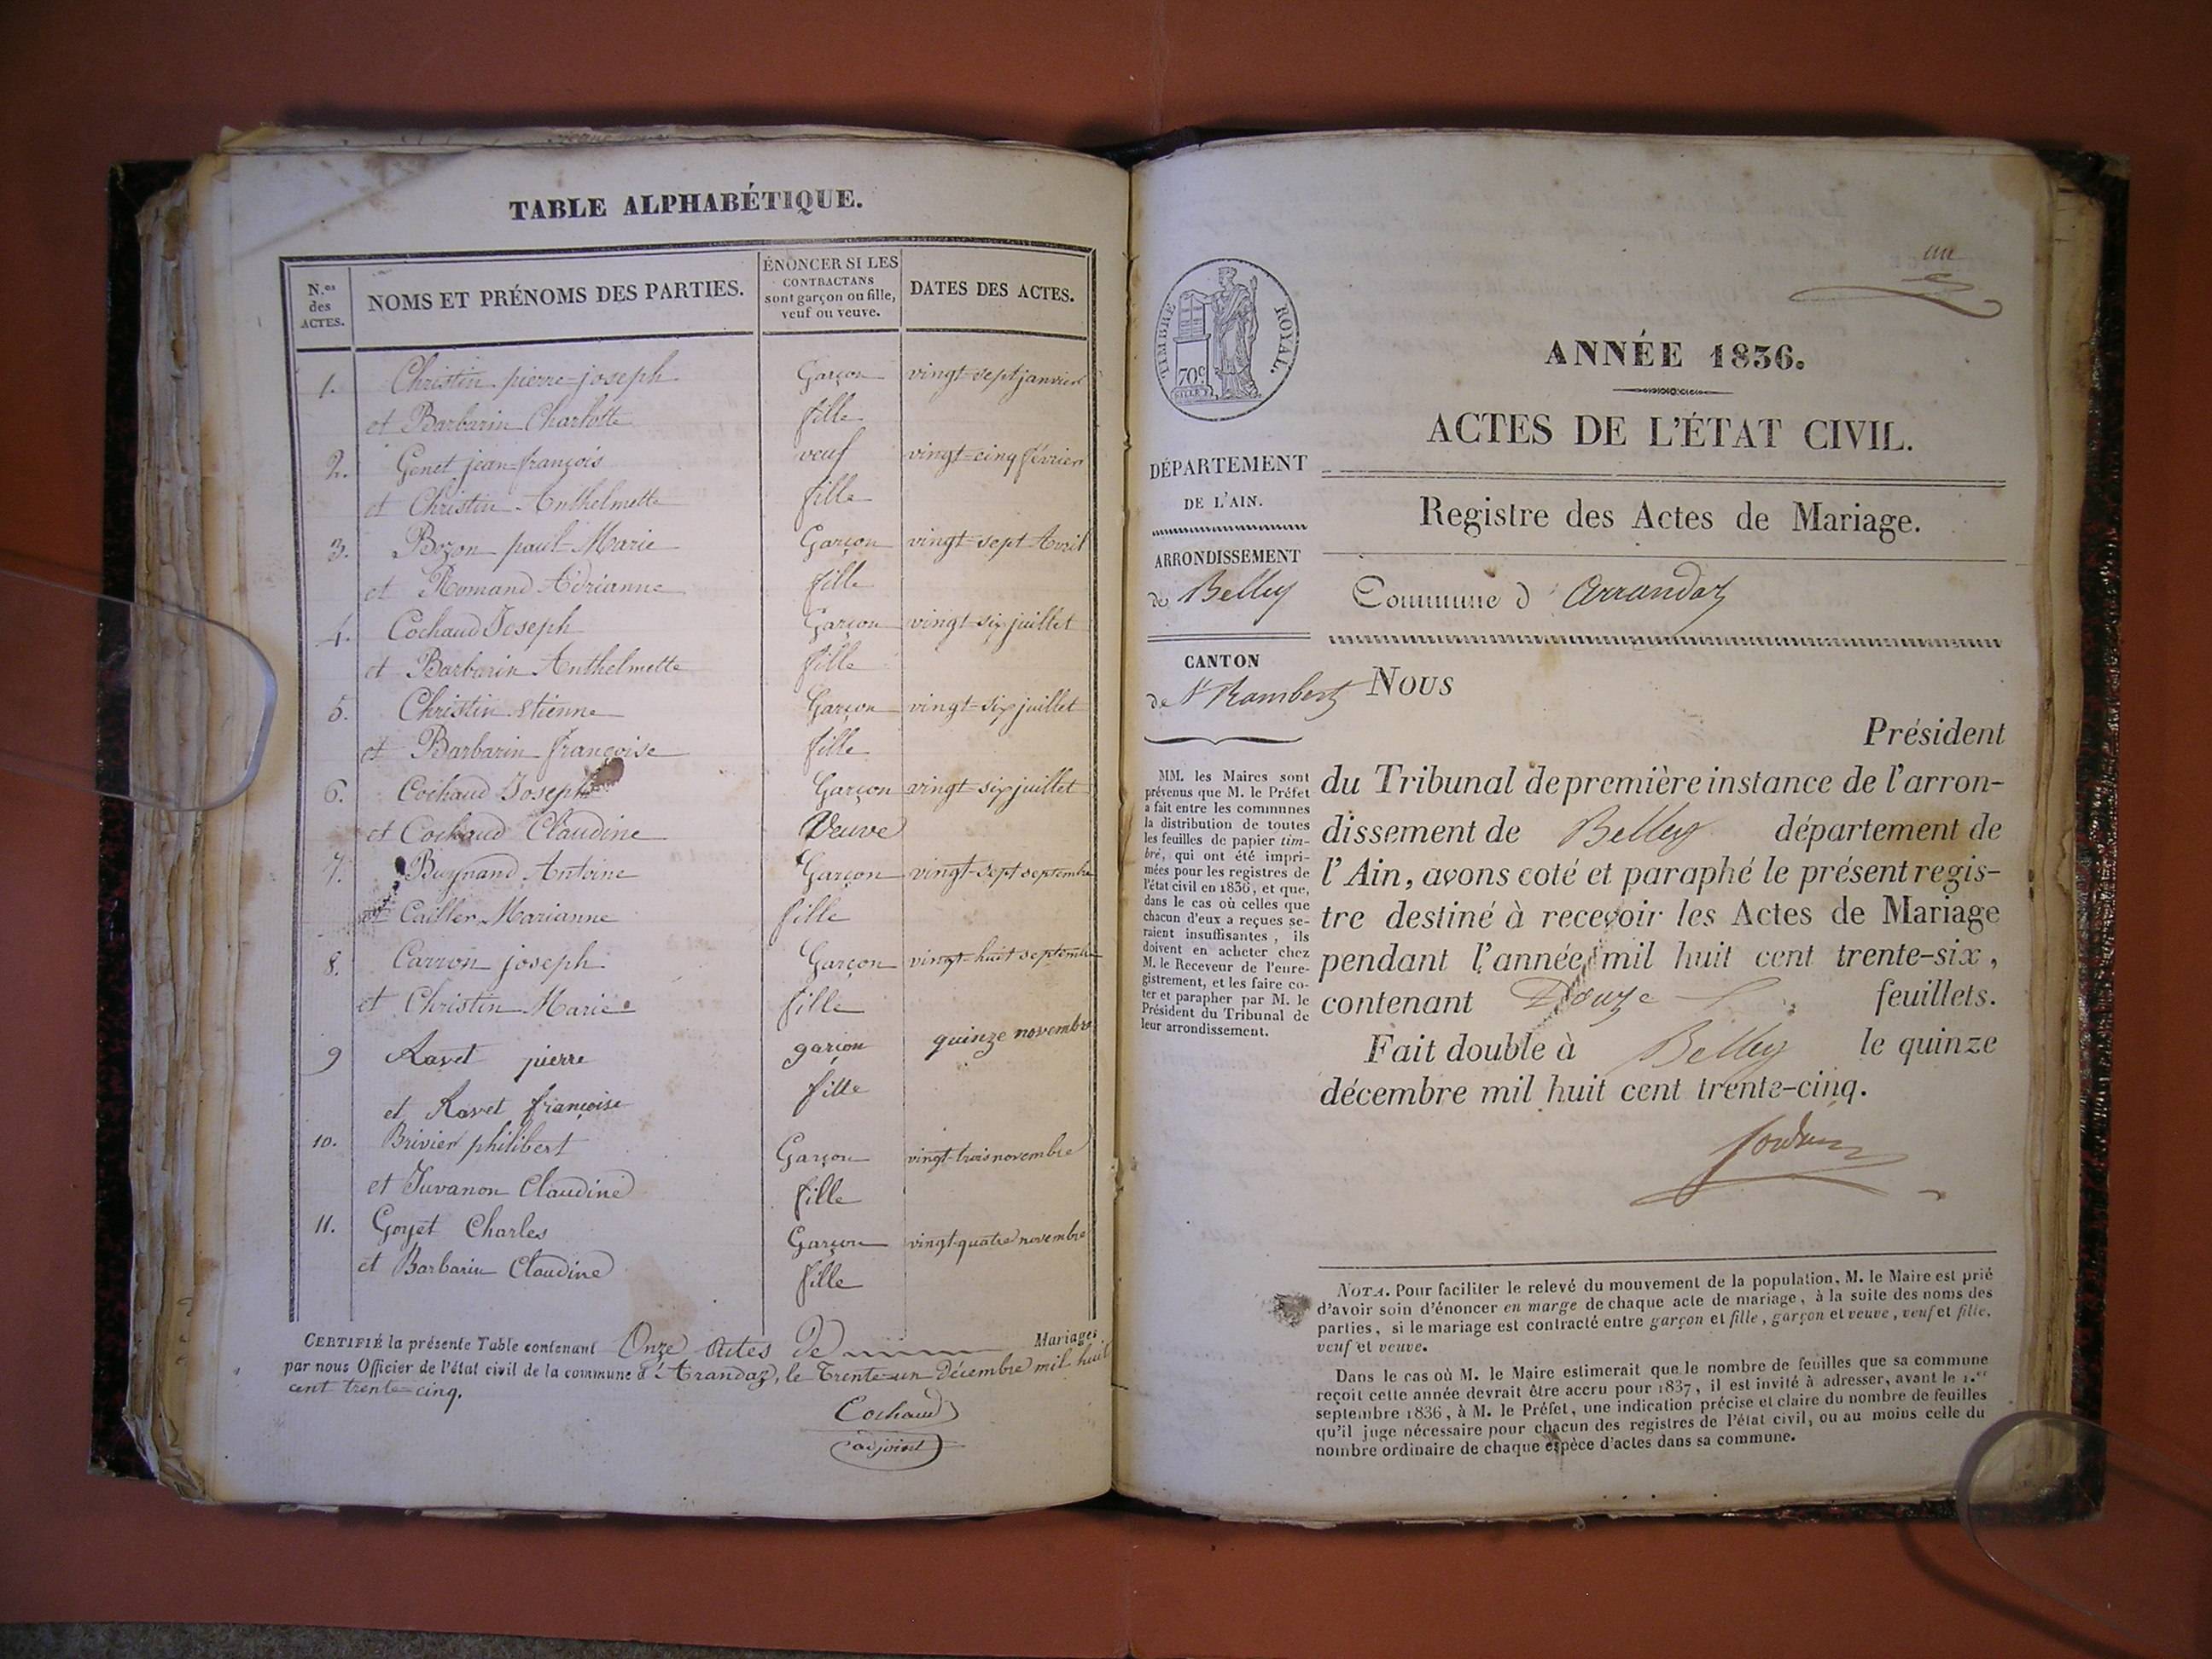 TABLE ALPHABÉTIQUE.
N.os des ACTES.
NOMS ET PRÉNOMS DES PARTIES.
ÉNONCER SI LES
CONTRACTANS
sont garçon ou fille,
veuf ou veuve.
DATES DES ACTES.
1. Christin pierre-joseph Garçon vingt-sept janvier
et Barbarin Charlotte fille
2. Genet jean-françois veuf vingt-cinq février
et Christin Anthelmette fille
3. Bozon paul-Marie Garçon vingt-sept Avril
et Romand Adrianne fille
4. Cochaud Joseph Garçon vingt-six juillet
et Barbarin Anthelmette fille
5. Christin etienne Garçon vingt-six juillet
et Barbarin françoise fille
6. Cochaud Joseph Garçon vingt-six juillet
et Cochaud Claudine Veuve
7. Buynand Antoine Garçon vingt-sept septembre
et Cailler Marianne fille
8. Carron joseph Garçon vingt-huit septembre
et Christin Marie fille
9 Ravet pierre garçon quinze novembre
et Ravet françoise fille
10. Brivier philibert Garçon vingt-trois novembre
et Juvanon Claudine fille
11. Goyet Charles Garçon vingt-quatre novembre
et Barbarin Claudine fille
CERTIFIÉ la présente Table contenant Onze Actes de Mariages
par nous Officier de l'état civil de la commune d'Arandaz, le Trente-un Décembre mil huit
cent trente-cinq.
Cochaud
adjoint
un
TIMBRE ROYAL.
70c
ANNÉE 1836.
ACTES DE L'ÉTAT CIVIL.
DÉPARTEMENT
DE L'AIN.
Registre des Actes de Mariage.
ARRONDISSEMENT
de Belley
Commune d'Arrandaz
CANTON
de St Rambert
Nous
Président
du Tribunal de première instance de l'arron-
dissement de Belley département de
l'Ain, avons coté et paraphé le présent regis-
tre destiné à recevoir les Actes de Mariage
pendant l'année mil huit cent trente-six,
contenant Douze feuillets.
Fait double à Belley le quinze
décembre mil huit cent trente-cinq.
MM. les Maires sont
prévenus que M. le Préfet
a fait entre les communes
la distribution de toutes
les feuilles de papier tim-
bré, qui ont été impri-
mées pour les registres de
l'état civil en 1836, et que,
dans le cas où celles que
chacun d'eux a reçues se-
raient insuffisantes, ils
doivent en acheter chez
M. le Receveur de l'enre-
gistrement, et les faire co-
ter et parapher par M. le
Président du Tribunal de
leur arrondissement.
NOTA. Pour faciliter le relevé du mouvement de la population, M. le Maire est prié
d'avoir soin d'énoncer en marge de chaque acte de mariage, à la suite des noms des
parties, si le mariage est contracté entre garçon et fille, garçon et veuve, veuf et fille,
veuf et veuve.
Dans le cas où M. le Maire estimerait que le nombre de feuilles que sa commune
reçoit cette année devrait être accru pour 1837, il est invité à adresser, avant le 1.er
septembre 1836, à M. le Préfet, une indication précise et claire du nombre de feuilles
qu'il juge nécessaire pour chacun des registres de l'état civil, ou au moins celle du
nombre ordinaire de chaque espèce d'actes dans sa commune.